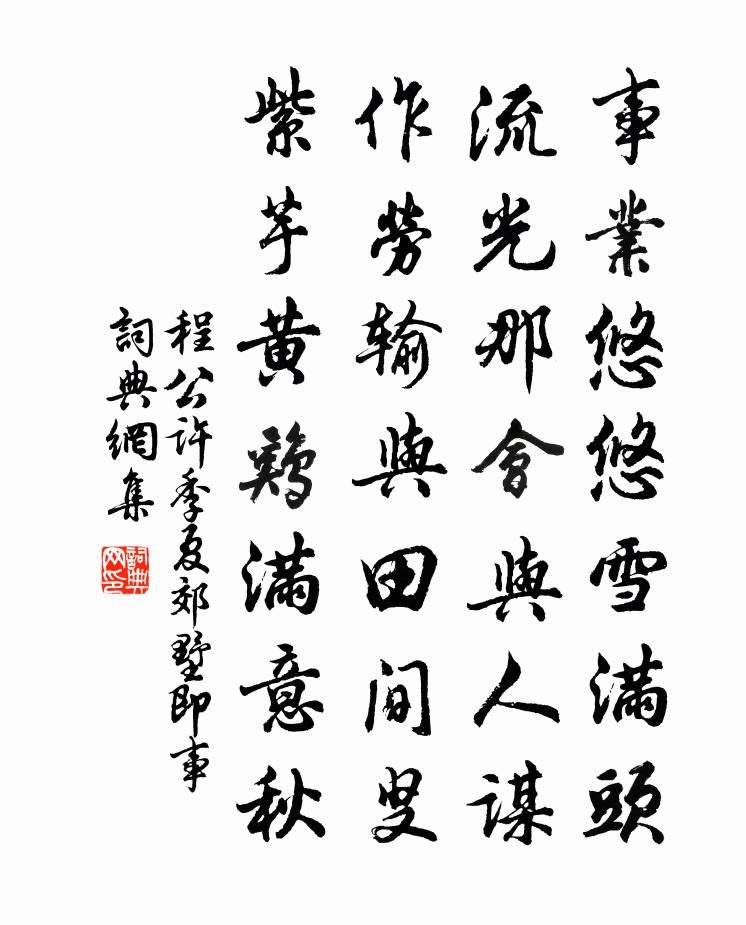 事業悠悠雪滿頭
流光那會與人謀
作勞输與田間叟
紫芋黄鷄滿意秋
程公許季夏郊墅即事
詞典網集
詞典网印